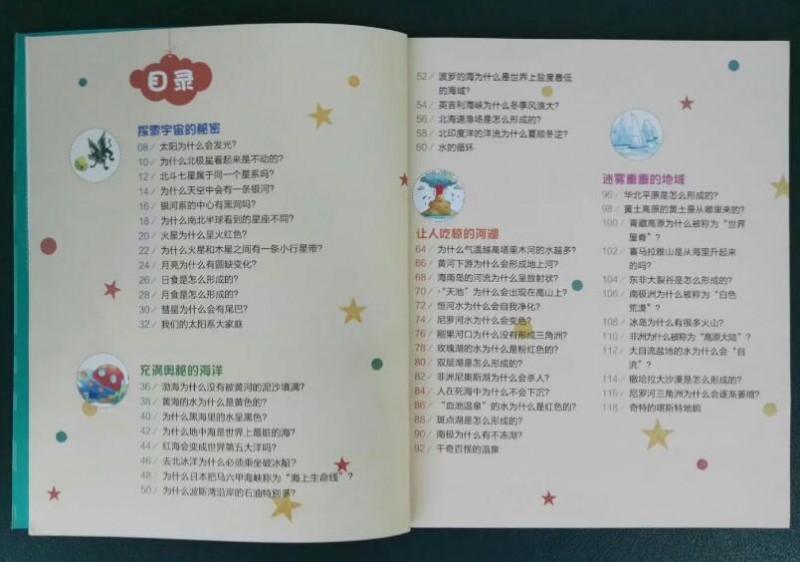 目录
探索宇宙的秘密
08／太阳为什么会发光?
10／为什么北极星看起来是不动的?
12／北斗七星属于同一个星系吗?
14／为什么天空中会有一条银河?
16／银河系的中心有黑洞吗?
18／为什么南北半球看到的星座不同?
20／火星为什么呈火红色?
22／为什么火星和木星之间有一条小行星带?
24／月亮为什么有圆缺变化?
26／日食是怎么形成的?
28／月食是怎么形成的?
30／彗星为什么会有尾巴?
32／我们的太阳系大家庭
充满奥秘的海洋
36／渤海为什么没有被黄河的泥沙填满?
38／黄海的水为什么是黄色的?
40／为什么黑海里的水呈黑色?
42／为什么地中海是世界上最脏的海?
44／红海会变成世界第五大洋吗?
46／去北冰洋为什么必须乘坐破冰船?
48／为什么日本把马六甲海峡称为“海上生命线”?
50／为什么波斯湾沿岸的石油特别多?
52／波罗的海为什么是世界上盐度最低
的海域?
54／英吉利海峡为什么冬季风浪大?
56／北海道渔场是怎么形成的?
58／北印度洋的洋流为什么夏顺冬逆?
60／水的循环
让人吃惊的河湖
64／为什么气温越高塔里木河的水越多?
66／黄河下游为什么会形成地上河?
68／海南岛的河流为什么呈放射状?
70／“天池”为什么会出现在高山上?
72／恒河水为什么会自我净化?
74／尼罗河水为什么会变色?
76／刚果河口为什么没有形成三角洲?
78／玫瑰湖的水为什么是粉红色的?
80／双层湖是怎么形成的?
82／非洲尼奥斯湖为什么会杀人?
84／人在死海中为什么不会下沉?
86／“血池温泉”的水为什么是红色的?
88／斑点湖是怎么形成的?
90／南极为什么有不冻湖?
92／千奇百怪的温泉
迷雾重重的地域
96／华北平原是怎么形成的?
98／黄土高原的黄土是从哪里来的?
100／青藏高原为什么被称为“世界
屋脊”?
102／喜马拉雅山是从海里升起来
的吗?
104／东非大裂谷是怎么形成的?
106／南极洲为什么被称为“白色
荒漠”?
108／冰岛为什么有很多火山?
110／非洲为什么被称为“高原大陆”?
112／大自流盆地的水为什么会“自
流”?
114／撒哈拉大沙漠是怎么形成的?
116／尼罗河三角洲为什么会逐渐萎缩?
118／奇特的喀斯特地貌